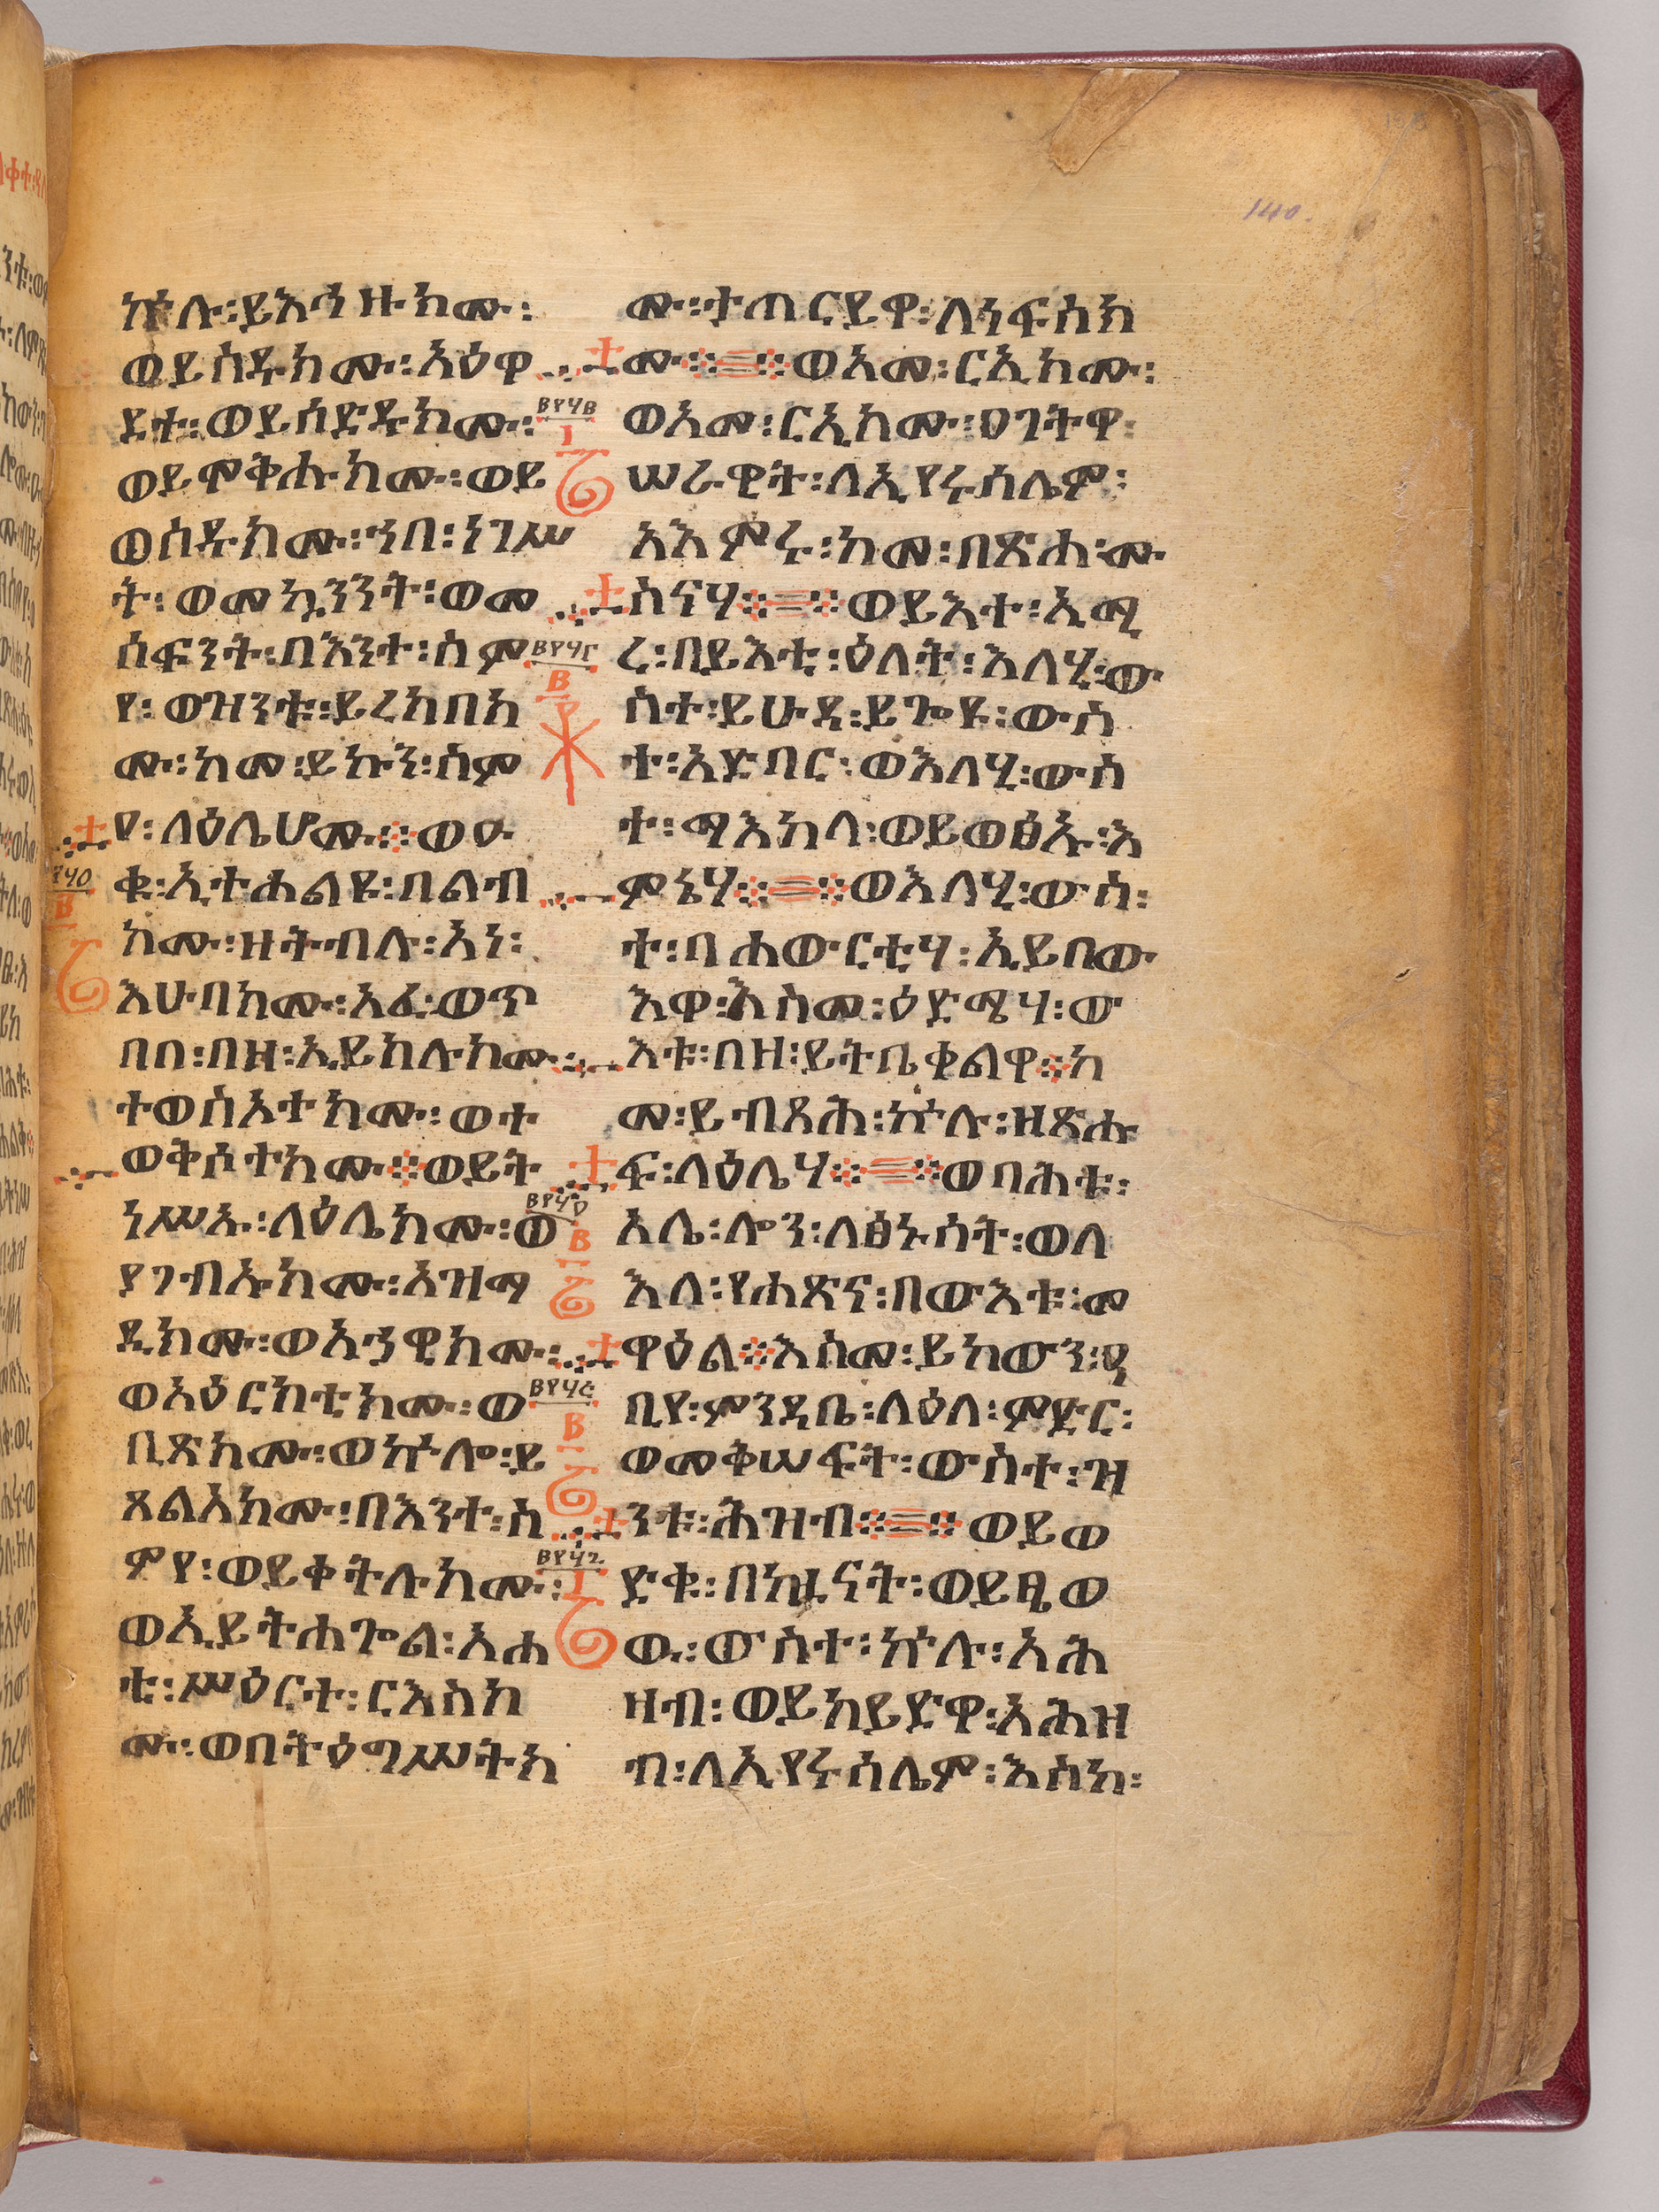 140.
ኵሉ፡ይእኅዙክሙ፡
ወይሰዱክሙ፡አዕዋ
ደተ፡ወይሰድዱክሙ፡
ወይሞቅሑክሙ፡ወይ
ወስዱክሙ፡ኀበ፡ነገሥ
ት፡ወመኳንንት፡ወመ
ሰፍንት፡በእንተ፡ስም
የ፡ወዝንቱ፡ይረክበክ
ሙ፡ከመ፡ይኩን፡ስም
ዐ፡ለዕሌሆሙ፡ወዑ
ቁ፡ኢተሐልዩ፡በልብ
ክሙ፡ዘትብሉ፡አነ፡
እሁበክሙ፡አፈ፡ወጥ
በበ፡በዘ፡ኢይክሉክሙ፡
ተወሰእተክሙ፡ወተ
ወቅሶተክሙ፡ወይት
ነሥኡ፡ለዕሌክሙ፡ወ
ያገብኡክሙ፡አዝማ
ዲክሙ፡ወአኀዊክሙ፡
ወአዕርክቲክሙ፡ወ
ቢጽክሙ፡ወኵሎ፡ይ
ጸልአክሙ፡በእንተ፡ስ
ምየ፡ወይቀትሉክሙ፡
ወኢይትሐጐል፡አሐ
ቲ፡ሥዕርተ፡ርእስክ
ሙ፡ወበትዕግሥትክ
ሙ፡ታጠርይዋ፡ለነፍስክ
ሙ፡ወአመ፡ርኢክሙ፡
ወአመ፡ርኢክሙ፡ዐገትዋ፡
ሠራዊት፡ለኢየሩሳሌም፡
አእምሩ፡ከመ፡በጽሐ፡ሙ
ስናሃ፡ወይእተ፡አሚ
ረ፡በይእቲ፡ዕለት፡እለሂ፡ው
ስተ፡ይሁዳ፡ይጐዩ፡ውስ
ተ፡አድባር፡ወእለሂ፡ውስ
ተ፡ማእከላ፡ወይወፅኡ፡እ
ምኔሃ፡ወእለሂ፡ውስ፡
ተ፡በሐውርቲሃ፡ኢይበው
እዋ፡እስመ፡ዕድሜሃ፡ው
እቱ፡በዘ፡ይትቤቀልዋ፡ከ
መ፡ይብጻሕ፡ኵሉ፡ዘጽሑ
ፍ፡ለዕሌሃ፡ወባሕቱ፡
አሌ፡ሎን፡ለፅኑሳት፡ወለ
እለ፡የሐጽና፡በውእቱ፡መ
ዋዕል፡እስመ፡ይከውን፡ዓ
ቢየ፡ምንዳቤ፡ለዕለ፡ምድር፡
ወመቅሠፍት፡ውስተ፡ዝ
ንቱ፡ሕዝብ፡ወይወ
ድቁ፡በኵናት፡ወይፄወ
ዉ፡ውስተ፡ኵሉ፡አሕ
ዛብ፡ወይከይድዋ፡አሕዛ
ብ፡ለኢየሩሳሌም፡እስከ፡